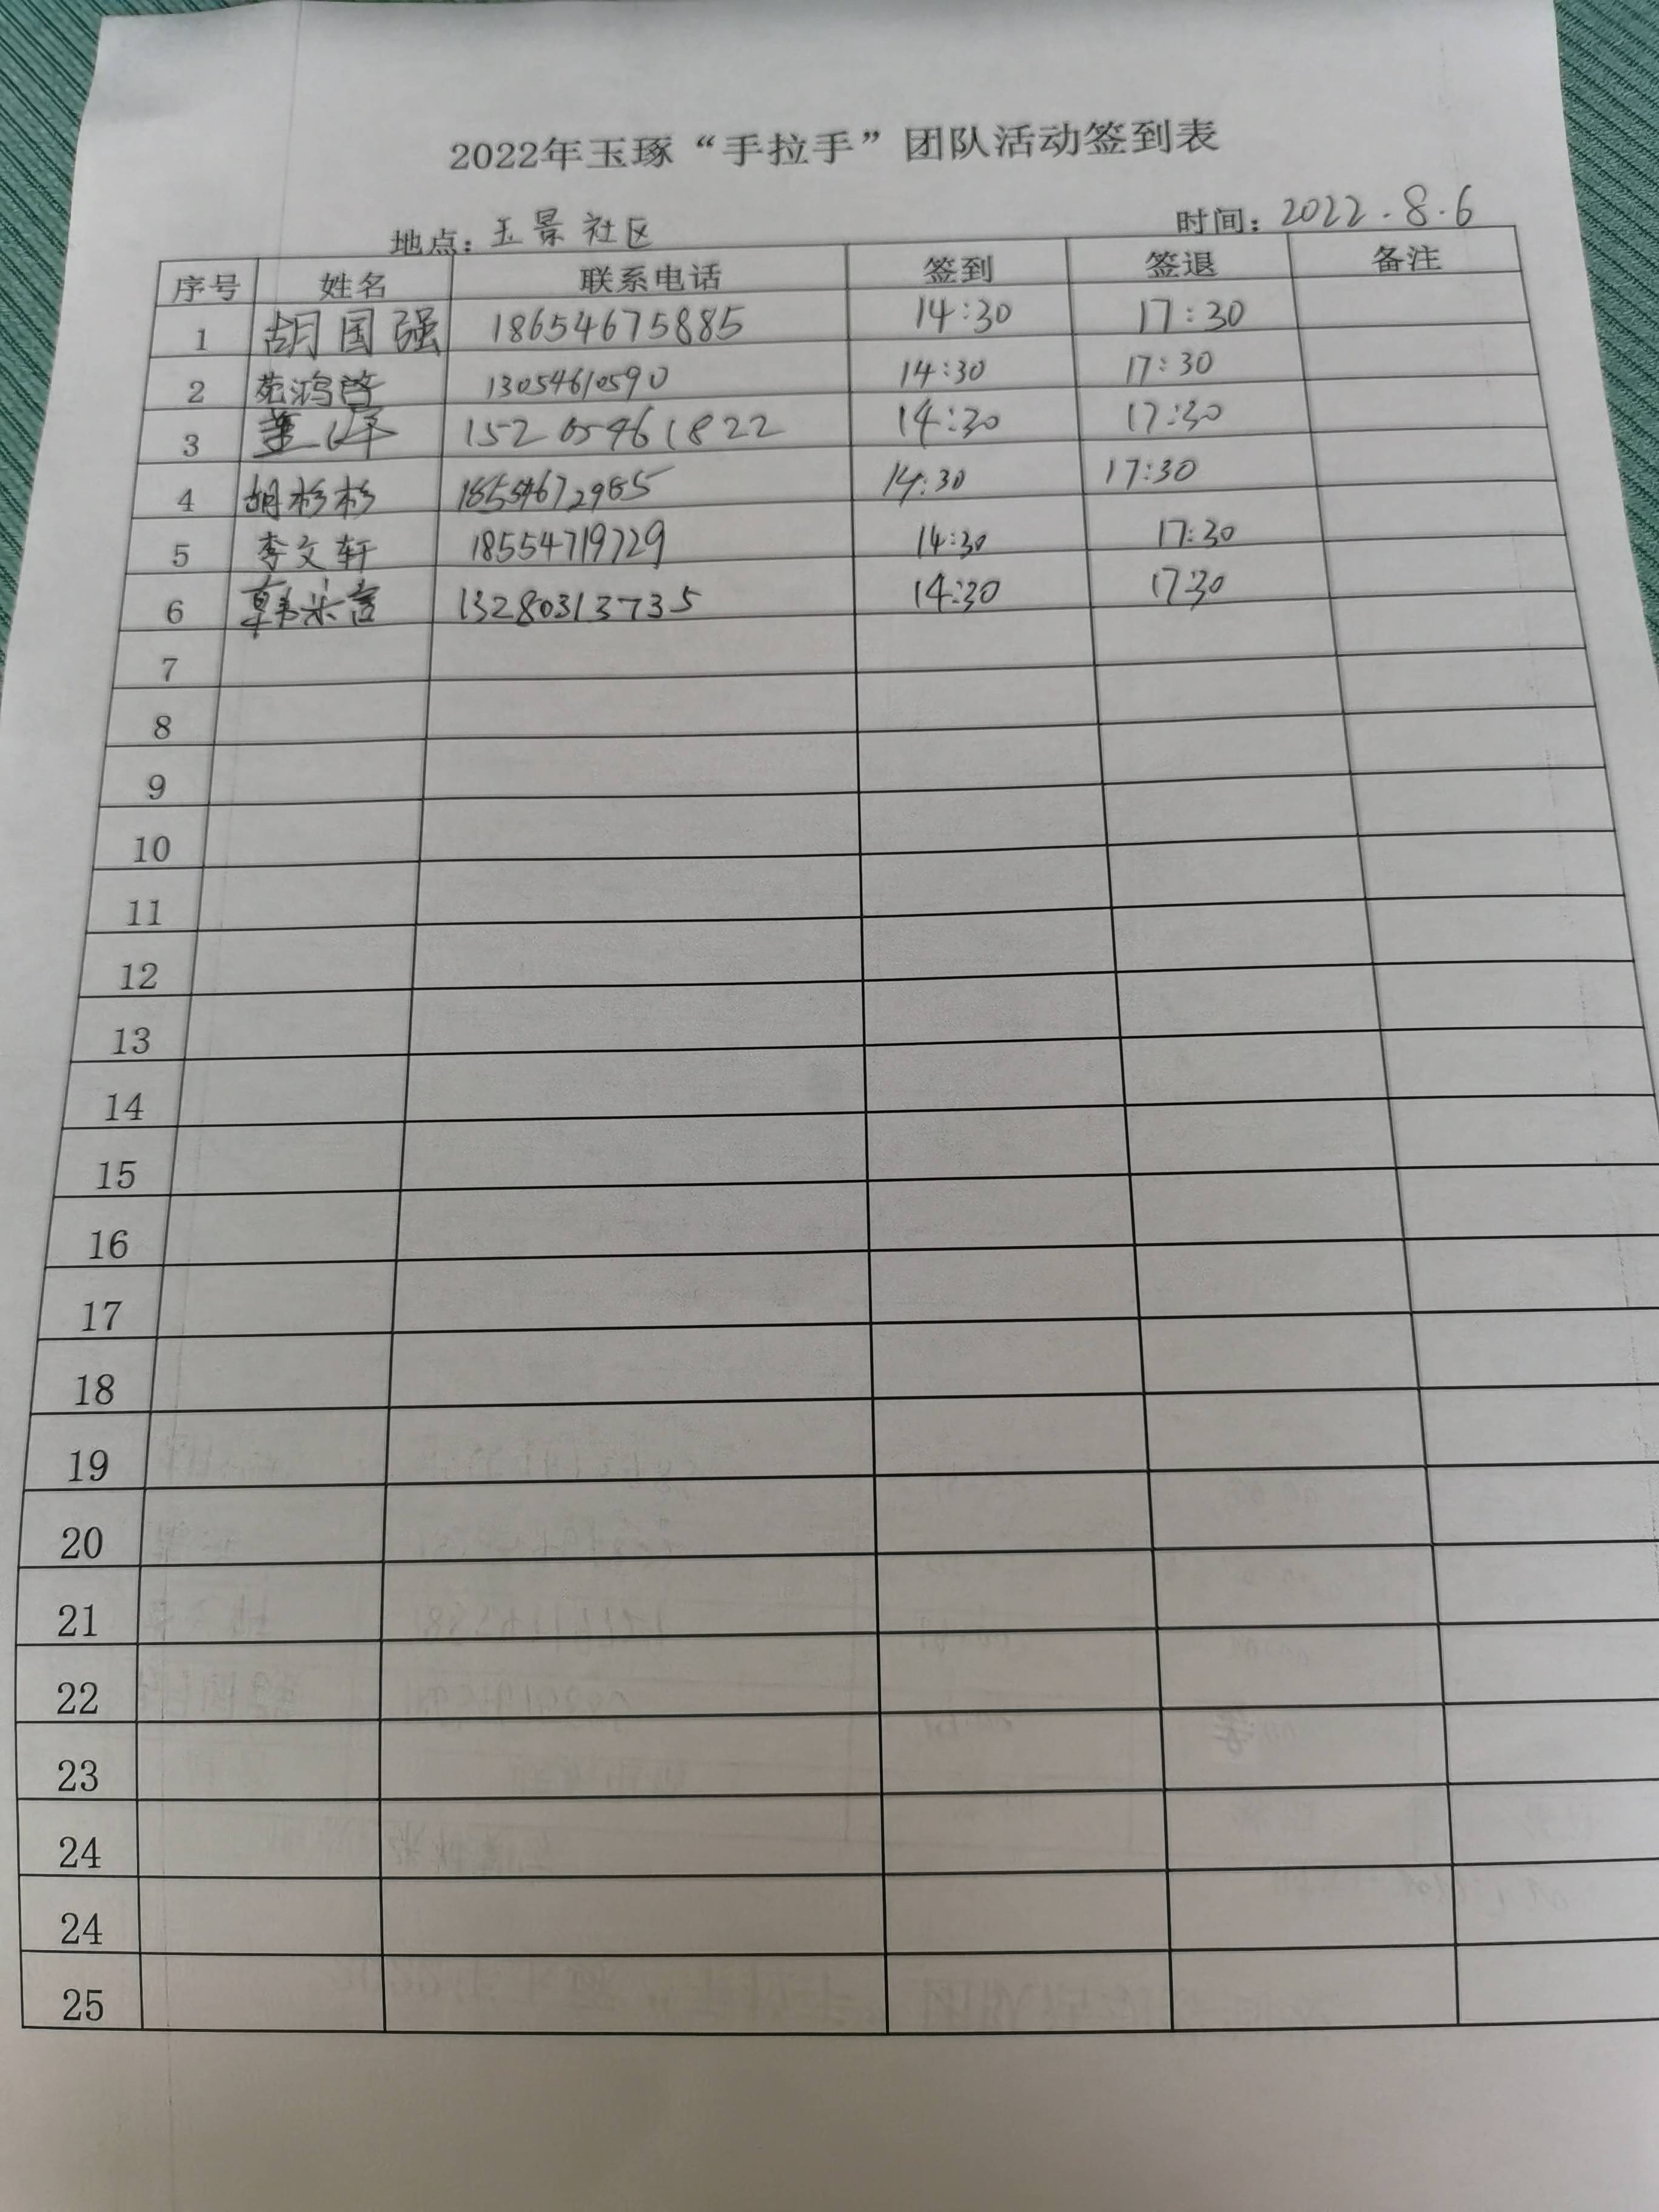 2022年玉琢“手拉手”团队活动签到表
地点：玉景社区 时间：2022.8.6
序号 姓名 联系电话 签到 签退 备注
1 胡国强 18654675885 14:30 17:30
2 苑鸿啓 13054610590 14:30 17:30
3 15205461822 14:30 17:30
4 胡杉杉 18554672985 14:30 17:30
5 李文轩 18554719729 14:30 17:30
6 韩乐言 13280313735 14:30 17:30
7
8
9
10
11
12
13
14
15
16
17
18
19
20
21
22
23
24
24
25